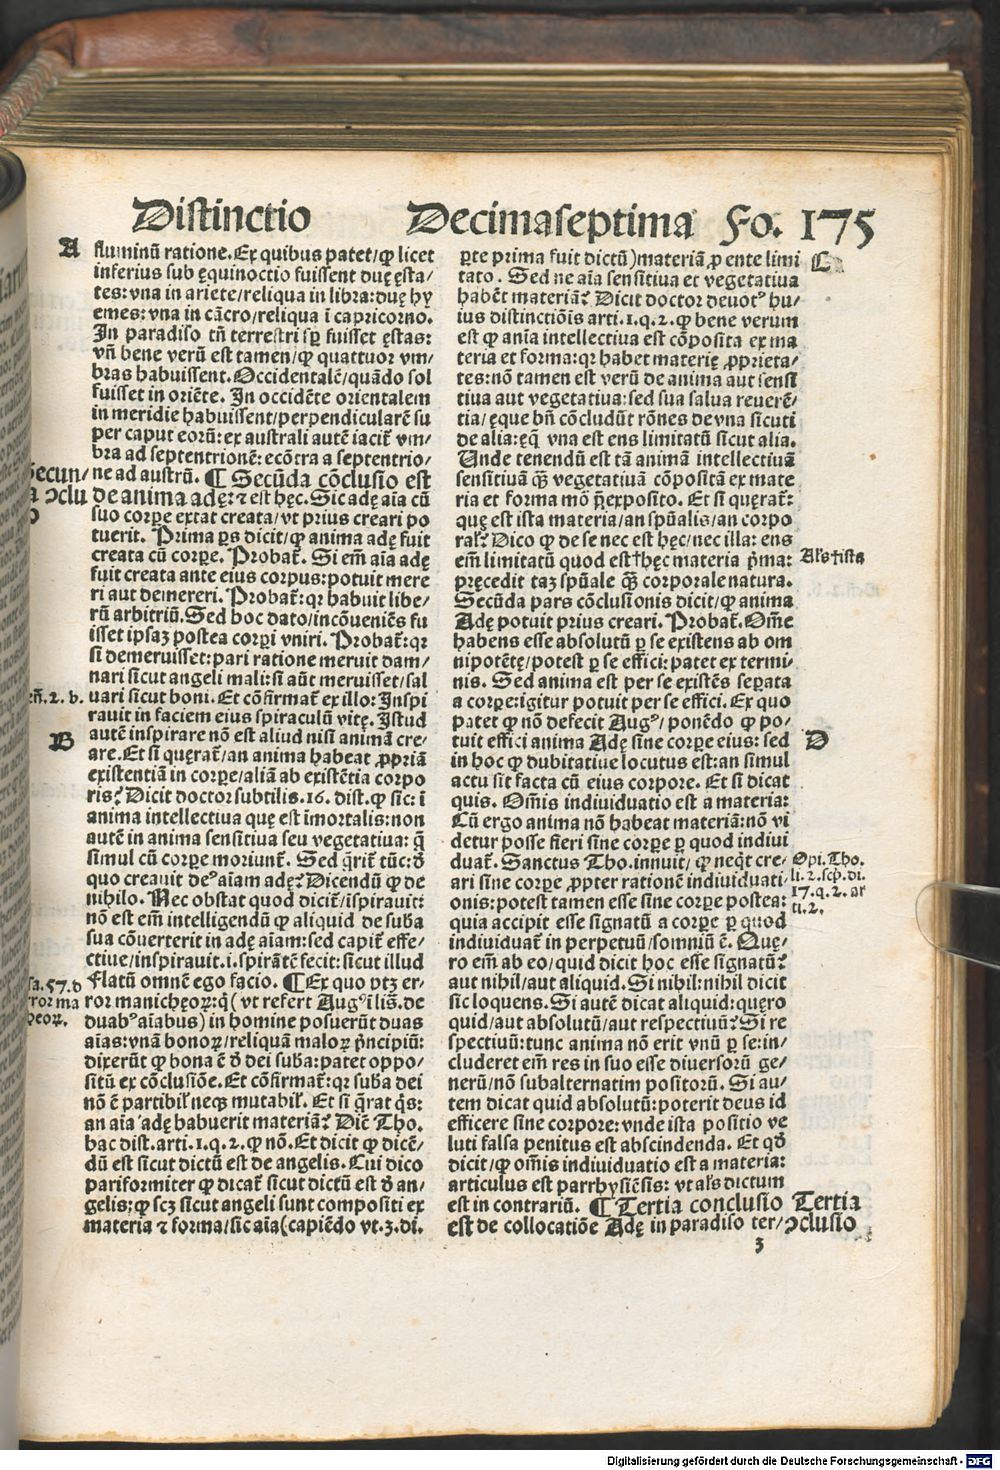 Distinctio Decimaseptima Fo. 175
A
fluminū ratione. Ex quibus patet/ꝙ licet
inferius sub ęquinoctio fuissent duę ęsta/
tes: vna in ariete/reliqua in libra: duę hy
emes: vna in cācro/reliqua ī capricorno.
In paradiso tn̄ terrestri sꝑ fuisset ęstas:
vn̄ bene verū est tamen/ꝙ quattuor vm/
bras habuissent. Occidentalē/quādo sol
fuisset in oriēte. In occidēte orientalem
in meridie habuissent/perpendicularē su
per caput eorū: ex australi autē iacit̄ vm/
bra ad septentrionē: ecōtra a septentrio/
ne ad austrū. ¶ Secūda cōclusio est
de anima adę: ⁊ est hęc. Sic adę aīa cū
suo corꝑe extat creata/vt prius creari po
tuerit. Prima ꝑs dicit/ꝙ anima adę fuit
creata cū corꝑe. Probat̄. Si em̄ aīa adę
fuit creata ante eius corpus: potuit mere
ri aut demereri. Probat̄: qꝛ habuit libe/
rū arbitriū. Sed hoc dato/incōueniēs fu
isset ipsaꝫ postea corꝑi vniri. Probat̄: qꝛ
si demeruisset: pari ratione meruit dam/
nari sicut angeli mali: si aūt meruisset/sal
uari sicut boni. Et cōfirmat̄ ex illo: Inspi
rauit in faciem eius spiraculū vitę. Istud
autē inspirare nō est aliud nisi animā cre/
are. Et si quęrat̄/an anima habeat ꝓpriā
existentiā in corꝑe/aliā ab existētia corpo
ris? Dicit doctor subtilis. 16. dist. ꝙ sic: ī
anima intellectiua quę est imortalis: non
autē in anima sensitiua seu vegetatiua: q̄
simul cū corꝑe moriunt̄. Sed q̄rit̄ tūc: ð
quo creauit deꝰ aīam adę? Dicendū ꝙ de
nihilo. Nec obstat quod dicit̄/ispirauit:
nō est em̄ intelligendū ꝙ aliquid de suba
sua cōuerterit in adę aīam: sed capit̄ effe/
ctiue/inspirauit. i. spirātē fecit: sicut illud
Flatū omnē ego facio. ¶ Ex quo ptꝫ er/
ror manichęoꝝ: q̄ ( vt refert Augꝰ ī lis̄. de
duabꝰ aīabus) in homine posuerūt duas
aīas: vnā bonoꝝ/reliquā maloꝝ p̄ncipiū:
dixerūt ꝙ bona ē ð dei suba: patet oppo/
sitū ex cōclusiōe. Et cōfirmat̄: qꝛ suba dei
nō ē partibil' neqꝫ mutabil'. Et si q̄rat q̄s:
an aīa adę habuerit materiā? Dic̄ Tho.
hac dist. arti. 1. q. 2. ꝙ nō. Et dicit ꝙ dicē/
dū est sicut dictū est de angelis. Cui dico
pariformiter ꝙ dicat̄ sicut dictū est ð an/
gelis: ꝙ scꝫ sicut angeli sunt compositi ex
materia ⁊ forma/sic aīa (capiēdo vt. 3. di.
Secun/
a ↄclu
o
eñ. 2. b.
B
sa. 57. d
rror ma
heoꝝ.
ꝑte prima fuit dictū) materiā ꝓ ente limi
tato. Sed ne aīa sensitiua et vegetatiua
habēt materiā? Dicit doctor deuotꝰ hu/
ius distinctiōis arti. 1. q. 2. ꝙ bene verum
est ꝙ anīa intellectiua est cōposita ex ma
teria et forma: qꝛ habet materię ꝓprieta/
tes: nō tamen est verū de anima aut sensi
tiua aut vegetatiua: sed sua salua reuerē/
tia/ęque bn̄ cōcludūt rōnes de vna sicuti
de alia: ęq̄ vna est ens limitatū sicut alia.
Unde tenendū est tā animā intellectiuā
sensitiuā q̄ꝫ vegetatiuā cōpositā ex mate
ria et forma mō p̄exposito. Et si quęrat̄:
quę est ista materia/an spūalis/an corpo
ral'? Dico ꝙ de se nec est hęc/nec illa: ens
em̄ limitatū quod est†hęc materia p̄ma:
pręcedit taꝫ spūale q̄ꝫ corporale natura.
Secūda pars cōclusionis dicit/ꝙ anima
Adę potuit prius creari. Probat̄. Om̄e
habens esse absolutū ꝑ se existens ab om
nipotētę/potest ꝑ se effici: patet ex termi/
nis. Sed anima est per se existēs seꝑata
a corꝑe: igitur potuit per se effici. Ex quo
patet ꝙ nō defecit Augꝰ/ponēdo ꝙ po/
tuit effici anima Adę sine corꝑe eius: sed
in hoc ꝙ dubitatiue locutus est: an simul
actu sit facta cū eius corpore. Et si dicat
quis. Om̄is indiuiduatio est a materia:
Cū ergo anima nō habeat materiā: nō vi
detur posse fieri sine corꝑe ꝑ quod indiui
duat̄. Sanctus Tho. innuit/ ꝙ neqt̄ cre/
ari sine corꝑe ꝓpter rationē indiuiduati/
onis: potest tamen esse sine corꝑe postea:
quia accipit esse signatū a corꝑe ꝑ quod
indiuiduat̄ in perpetuū/somniū ē. Quę/
ro em̄ ab eo/quid dicit hoc esse signatū?
aut nihil/aut aliquid. Si nihil: nihil dicit
sic loquens. Si autē dicat aliquid: quęro
quid/aut absolutū/aut respectiuū? Si re
spectiuū: tunc anima nō erit vnū ꝑ se: in/
cluderet em̄ res in suo esse diuersorū ge/
nerū/nō subalternatim positorū. Si au/
tem dicat quid absolutū: poterit deus id
efficere sine corpore: vnde ista positio ve
luti falsa penitus est abscindenda. Et qð
dicit/ꝙ om̄is indiuiduatio est a materia:
articulus est parrhysiēsis: vt al's dictum
est in contrariū. ¶ Tertia conclusio
est de collocatiōe Adę in paradiso ter/
C
Al's †ista
D
Opi. Tho.
li. 2. scp̄. di.
17. q. 2. ar
ti. 2.
Tertia
ↄclusio
3
Digitalisierung gefördert durch die Deutsche Forschungsgemeinschaft - DFG